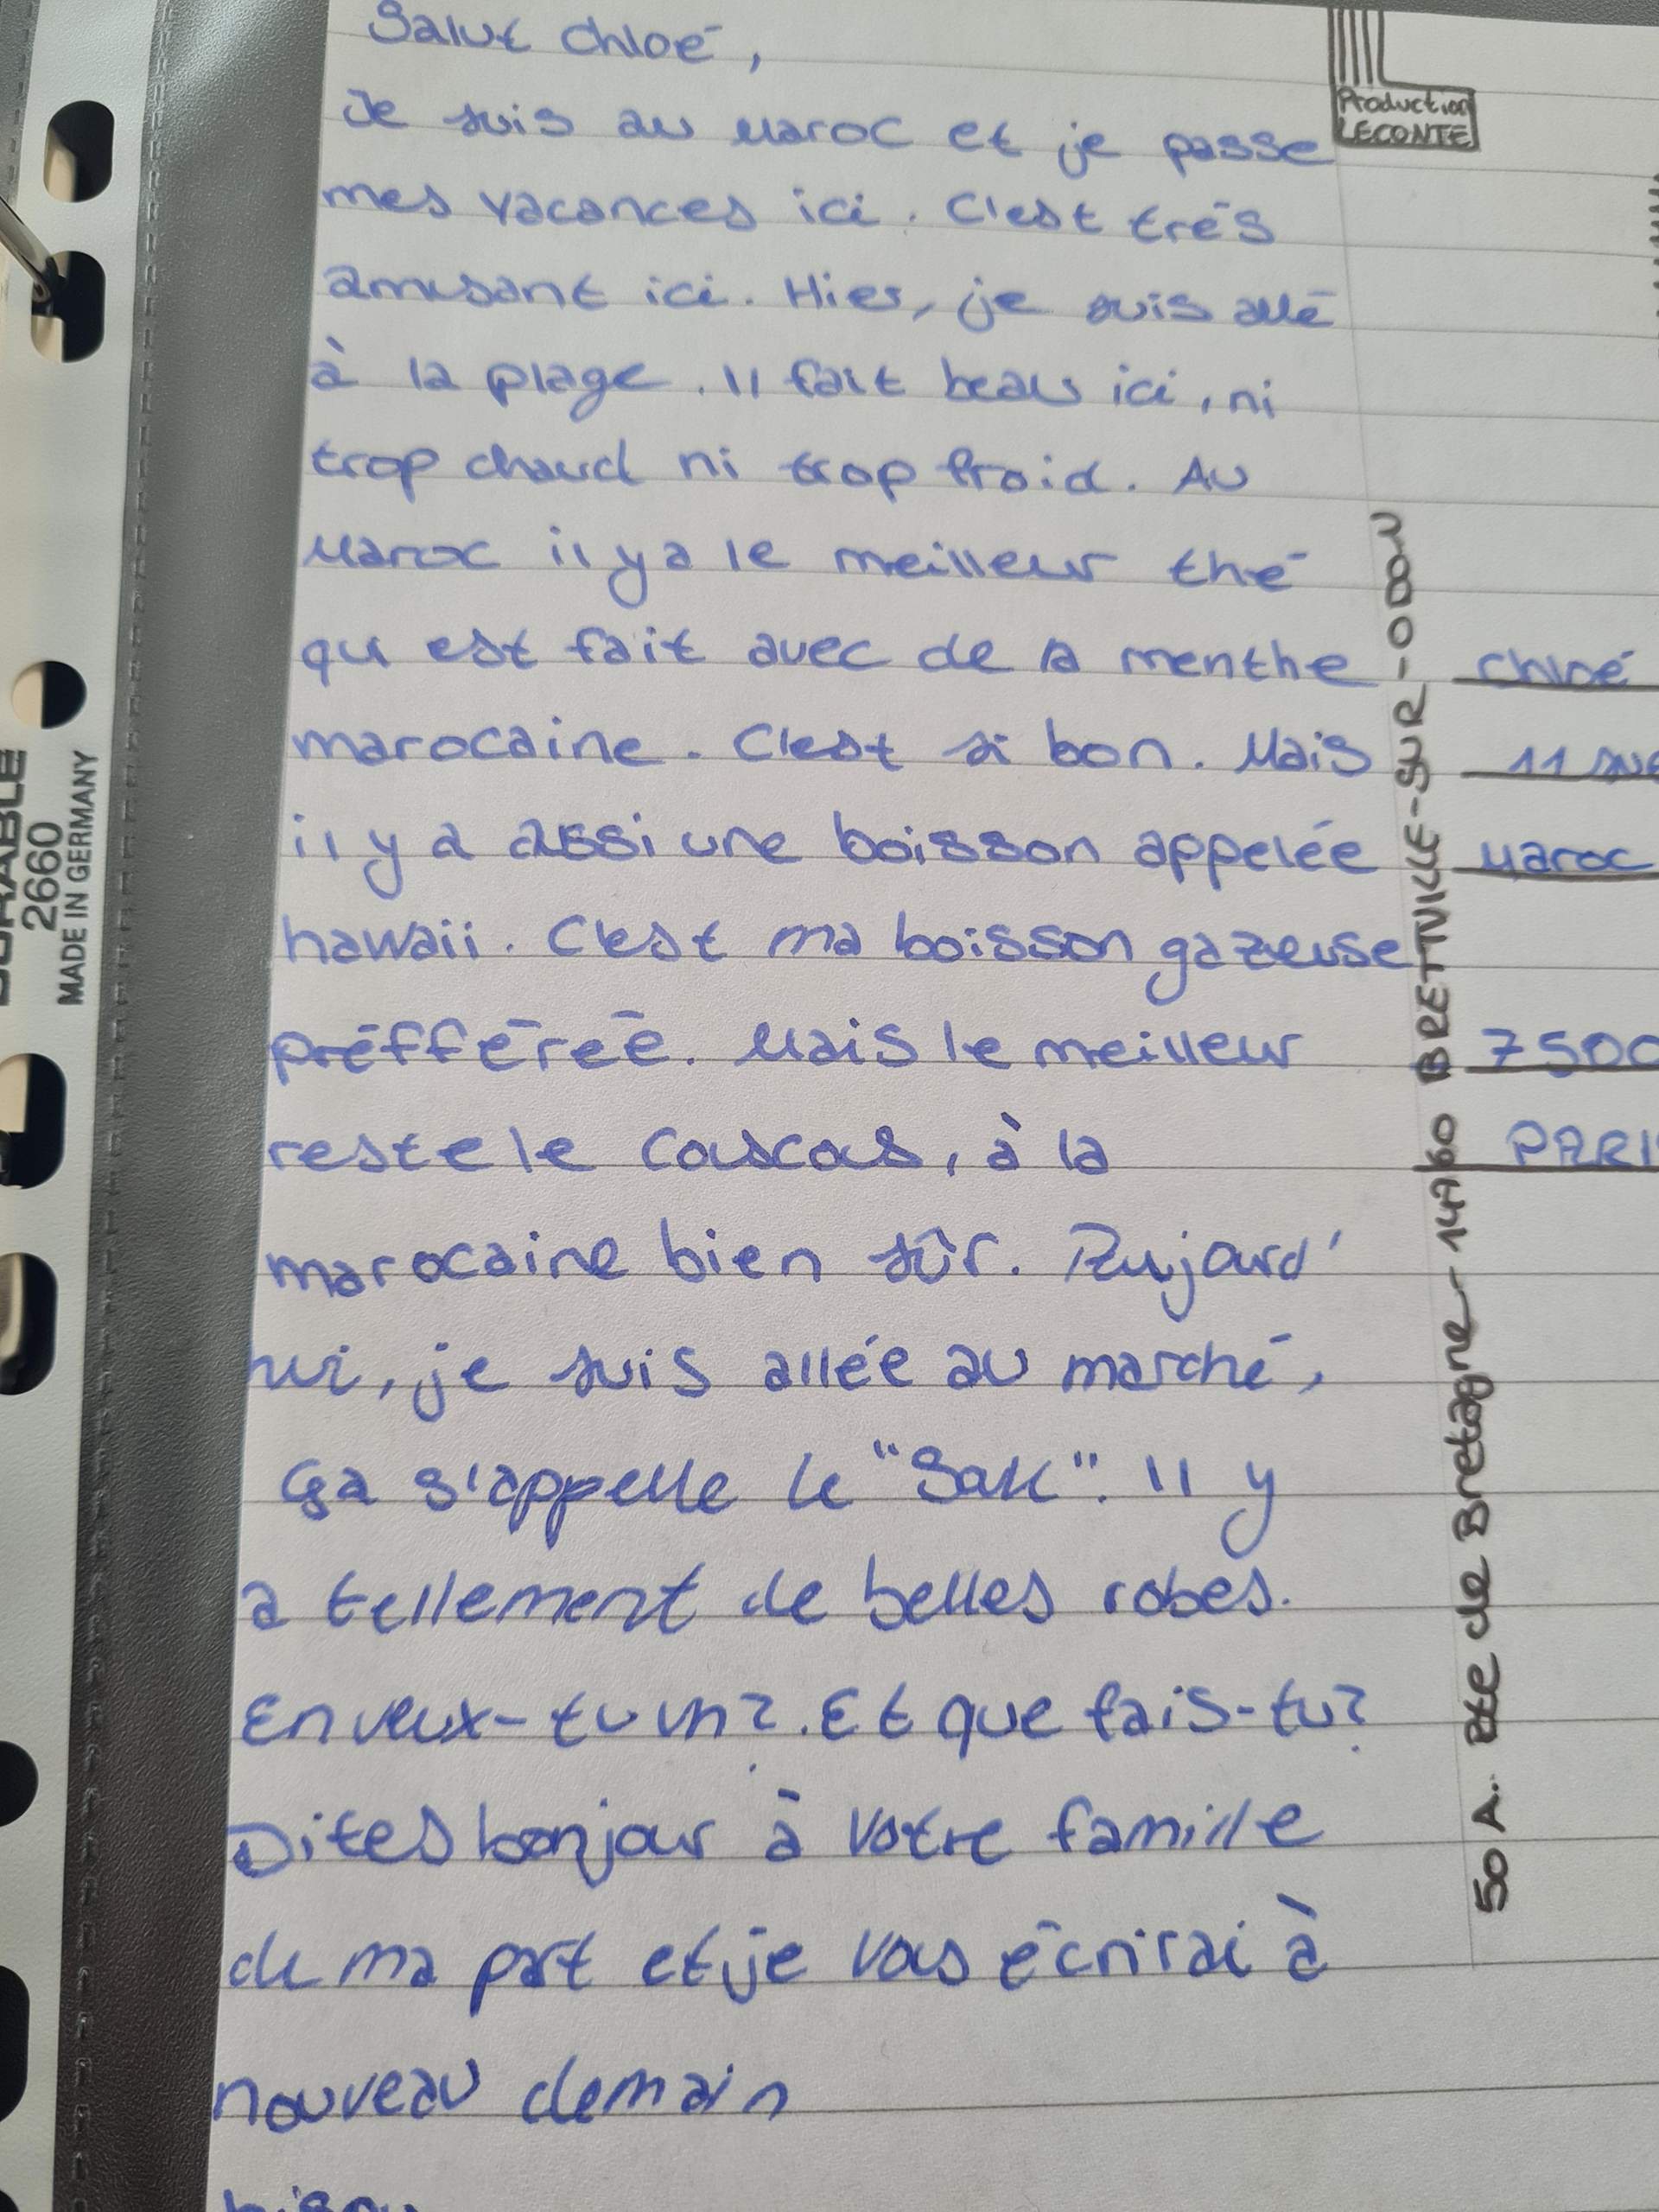 Salut Chloé,
Je suis au Maroc et je passe
mes vacances ici. C'est trés
amusant ici. Hier, je suis allé
à la plage. Il fait beau ici, ni
trop chaud ni trop froid. Au
Maroc il y a le meilleur thé
qui est fait avec de la menthe
marocaine. C'est si bon. Mais
il y a aussi une boisson appelée
hawaii. C'est ma boisson gazeuse
préfférée. Mais le meilleur
reste le Couscous, à la
marocaine bien sûr. Aujourd'
hui, je suis allée au marché,
ça s'appelle le "Souk". Il y
a tellement de belles robes.
En veux-tu un?. Et que fais-tu?
Dites bonjour à votre famille
de ma part et je vous écrirai à
nouveau demain
Production
LECONTE
50 A. Rte de Bretagne - 14760 BRETTVILLE-SUR-ODON
Chloé
11
Maroc
7500
PARI
DURABLE
2660
MADE IN GERMANY